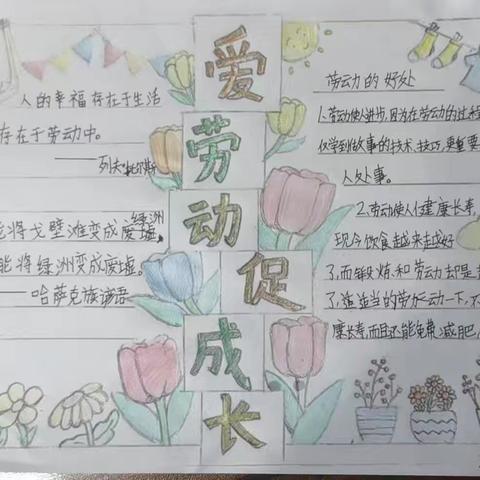 爱劳动促成长
人的幸福存在于生活
存在于劳动中。
——列夫·托尔斯
能将戈壁滩变成绿洲
废墟,
能将绿洲变成废墟。
——哈萨克族谚语
劳动的好处
1.劳动使人进步,因为在劳动的过程
仅学到做事的技术、技巧,更重要
人处事。
2.劳动使人健康长寿,
现今饮食越来越好
了,而锻炼和劳动却是
了,适适当的劳动一下,不
康长寿,而且还能免费减肥,